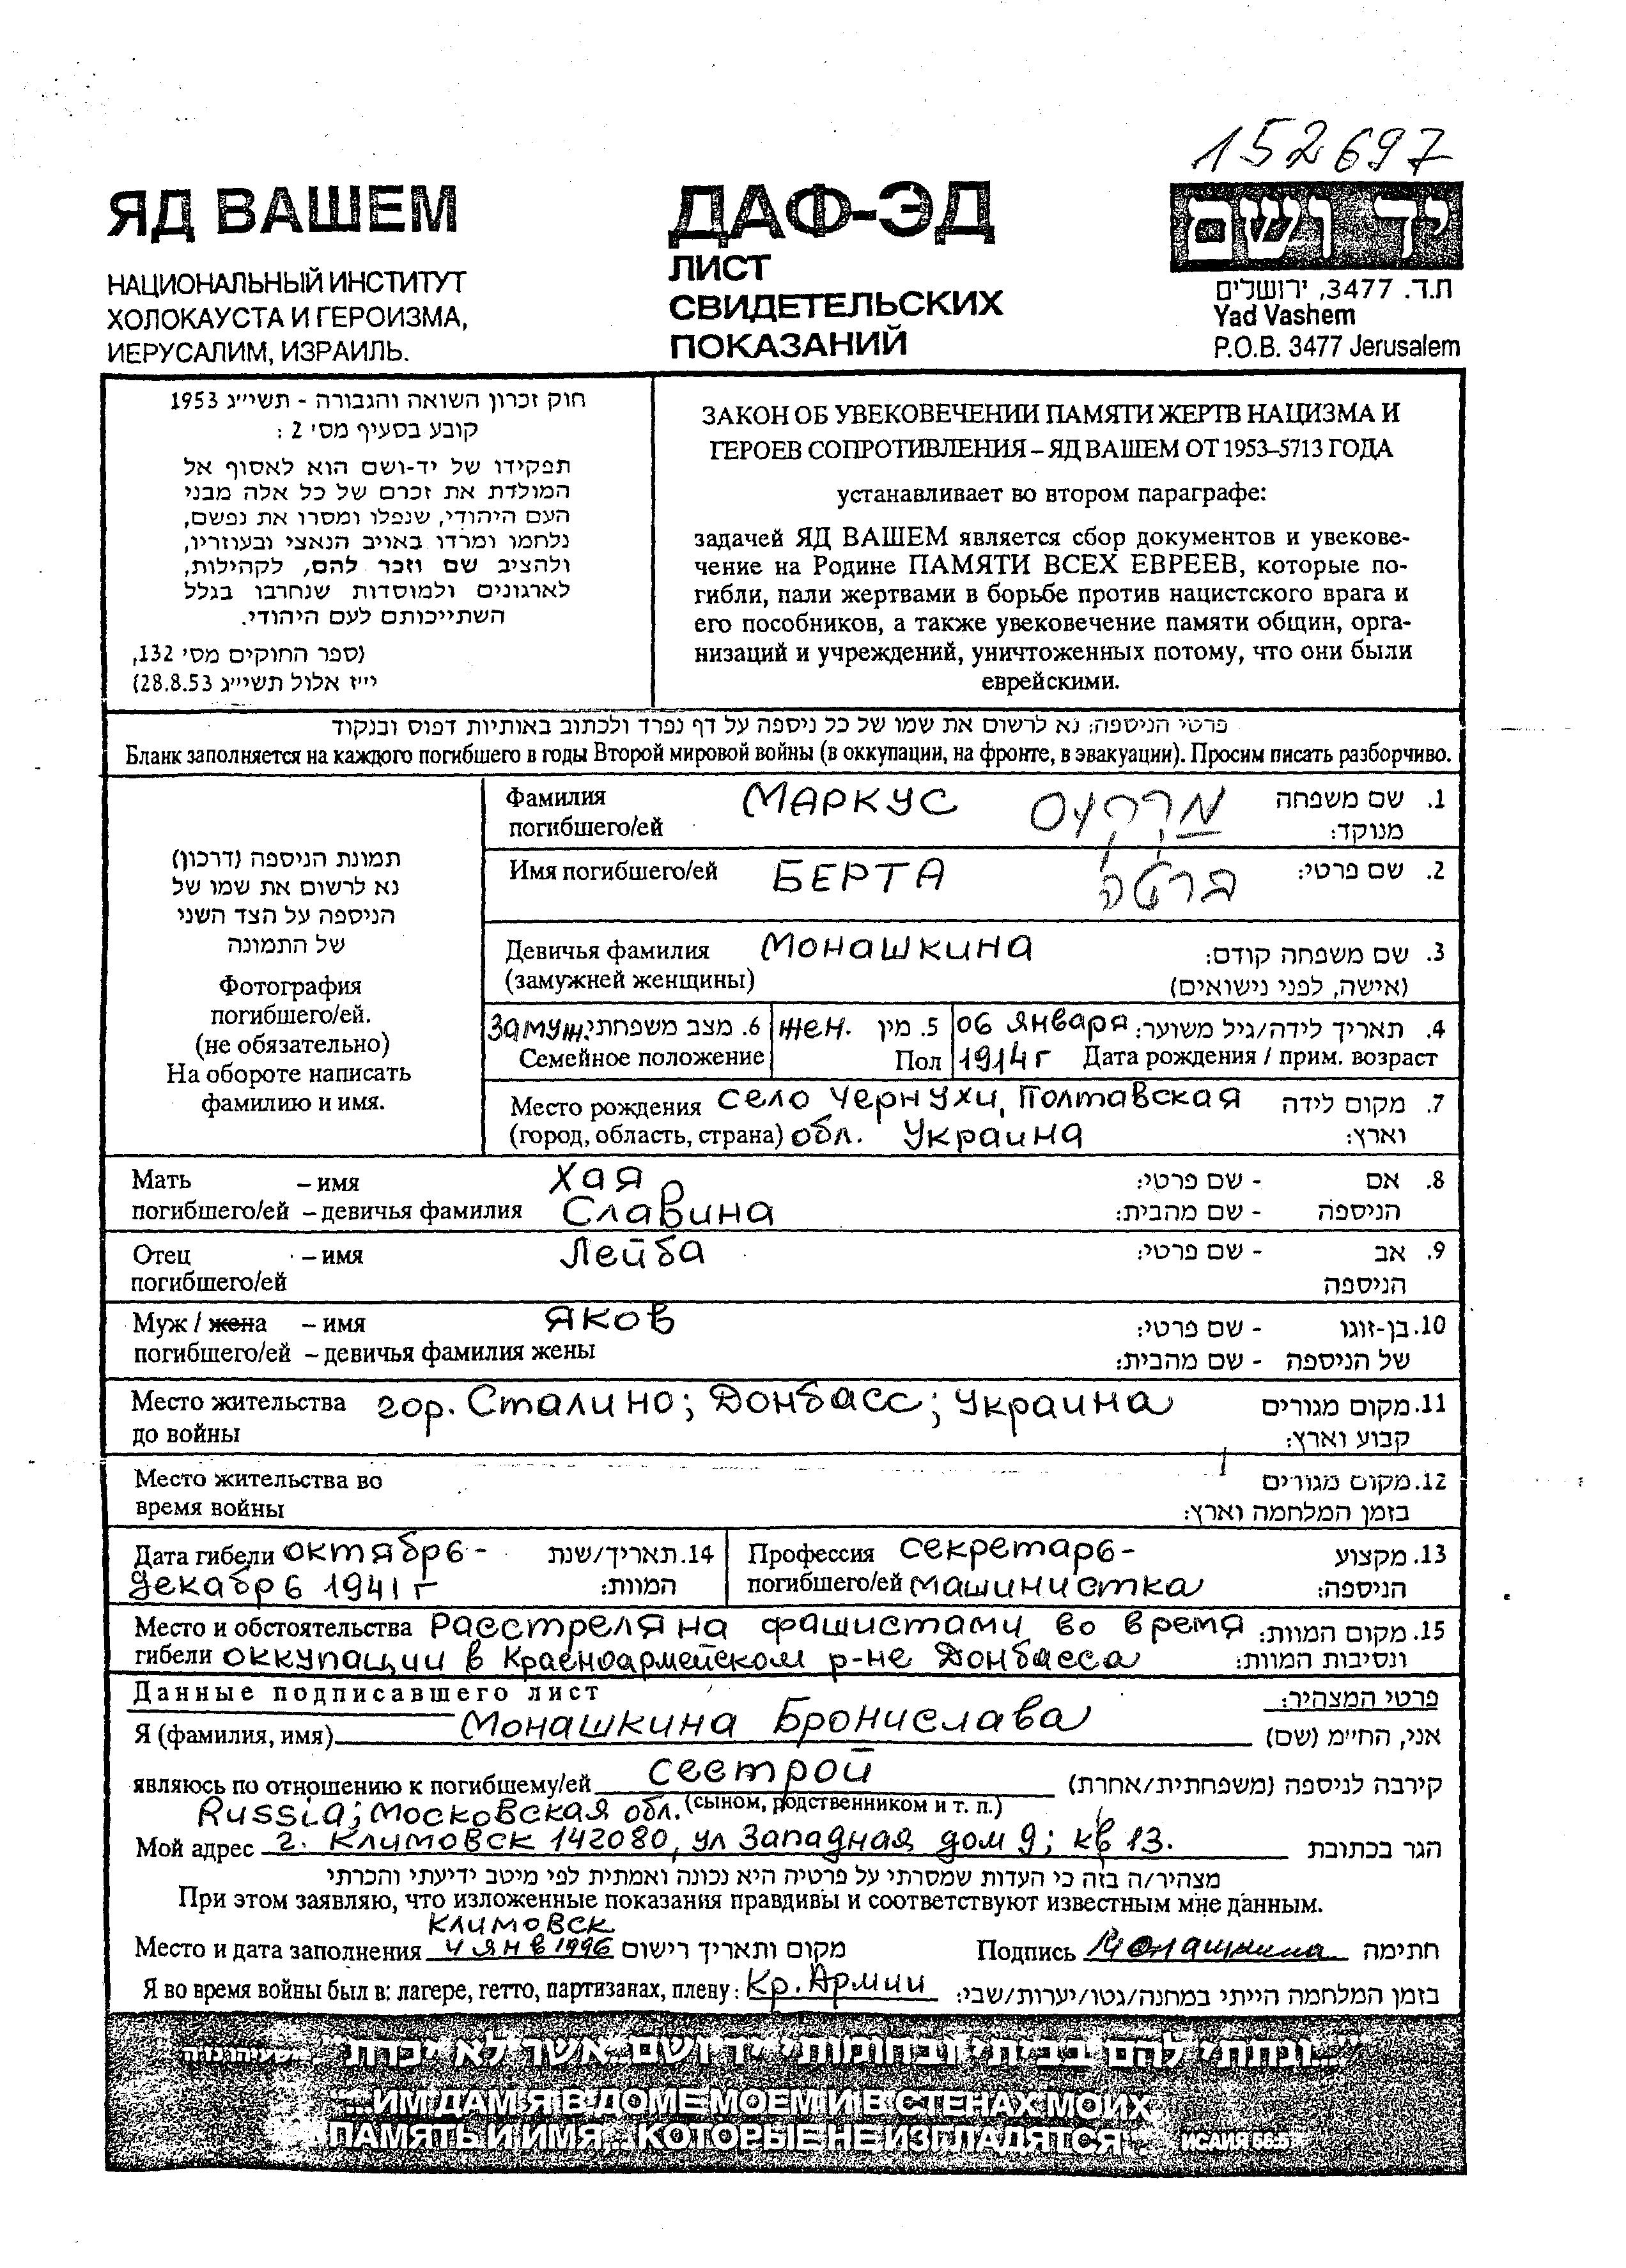 152697
ЯД ВАШЕМ
НАЦИОНАЛЬНЫЙ ИНСТИТУТ
ХОЛОКАУСТА И ГЕРОИЗМА,
ИЕРУСАЛИМ, ИЗРАИЛЬ.
ДАФ-ЭД
ЛИСТ
СВИДЕТЕЛЬСКИХ
ПОКАЗАНИЙ
יד ושם
ת.ד. 3477, ירושלים
Yad Vashem
P.O.B. 3477 Jerusalem
חוק זכרון השואה והגבורה - תשי״ג 1953
קובע בסעיף מס׳ 2 :
תפקידו של יד-ושם הוא לאסוף אל
המולדת את זכרם של כל אלה מבני
העם היהודי, שנפלו ומסרו את נפשם,
נלחמו ומרדו באויב הנאצי ובעוזריו,
ולהציב שם וזכר להם, לקהילות,
לארגונים ולמוסדות שנחרבו בגלל
השתייכותם לעם היהודי.
(ספר החוקים מס׳ 132,
י״ז אלול תשי״ג 28.8.53)
ЗАКОН ОБ УВЕКОВЕЧЕНИИ ПАМЯТИ ЖЕРТВ НАЦИЗМА И
ГЕРОЕВ СОПРОТИВЛЕНИЯ – ЯД ВАШЕМ ОТ 1953–5713 ГОДА
устанавливает во втором параграфе:
задачей ЯД ВАШЕМ является сбор документов и увекове-
чение на Родине ПАМЯТИ ВСЕХ ЕВРЕЕВ, которые по-
гибли, пали жертвами в борьбе против нацистского врага и
его пособников, а также увековечение памяти общин, орга-
низаций и учреждений, уничтоженных потому, что они были
еврейскими.
פרטי הניספה: נא לרשום את שמו של כל ניספה על דף נפרד ולכתוב באותיות דפוס ובנקוד
Бланк заполняется на каждого погибшего в годы Второй мировой войны (в оккупации, на фронте, в эвакуации). Просим писать разборчиво.
תמונת הניספה (דרכון)
נא לרשום את שמו של
הניספה על הצד השני
של התמונה
Фотография
погибшего/ей.
(не обязательно)
На обороте написать
фамилию и имя.
Фамилия МАРКУС מרקוס 1. שם משפחה
погибшего/ей מנוקד:
Имя погибшего/ей БЕРТА ברטה 2. שם פרטי:
Девичья фамилия Монашкина 3. שם משפחה קודם:
(замужней женщины) (אישה, לפני נישואים)
замуж. 6. מצב משפחתי: жен. 5. מין 06 января 4. תאריך לידה/גיל משוער:
Семейное положение Пол 1914 г Дата рождения / прим. возраст
Место рождения село Чернухи, Полтавская 7. מקום לידה
(город, область, страна) обл. Украина וארץ:
Мать – имя Хая 8. אם - שם פרטי:
погибшего/ей – девичья фамилия Славина הניספה - שם מהבית:
Отец – имя Лейба 9. אב - שם פרטי:
погибшего/ей הניספה
Муж / жена – имя Яков 10. בן-זוגו - שם פרטי:
погибшего/ей – девичья фамилия жены של הניספה - שם מהבית:
Место жительства гор. Сталино; Донбасс; Украина 11. מקום מגורים
до войны קבוע וארץ:
Место жительства во 12. מקום מגורים
время войны בזמן המלחמה וארץ:
Дата гибели октябрь - 14. תאריך/שנת
декабрь 1941 г המוות:
Профессия секретарь- 13. מקצוע
погибшего/ей машинистка הניספה:
Место и обстоятельства Расстреляна фашистами во время 15. מקום המוות:
гибели оккупации в Красноармейском р-не Донбасса ונסיבות המוות:
Данные подписавшего лист פרטי המצהיר:
Я (фамилия, имя) Монашкина Бронислава אני, החי״מ (שם)
являюсь по отношению к погибшему/ей сестрой קירבה לניספה (משפחתית/אחרת)
(сыном, родственником и т. п.)
Russia; Московская обл.
Мой адрес г. Климовск 142080, ул Западная дом 9; кв 13. הגר בכתובת
מצהיר/ה בזה כי העדות שמסרתי על פרטיה היא נכונה ואמתית לפי מיטב ידיעתי והכרתי
При этом заявляю, что изложенные показания правдивы и соответствуют известным мне данным.
Климовск
Место и дата заполнения 4 янв 1996 מקום ותאריך רישום Подпись Монашкина חתימה
Я во время войны был в: лагере, гетто, партизанах, плену: Кр. Армии בזמן המלחמה הייתי במחנה/גטו/יערות/שבי:
״...ונתתי להם בביתי ובחומותי יד ושם...אשר לא יכרת״ ישעיהו נו ה
“...ИМ ДАМ Я В ДОМЕ МОЕМ И В СТЕНАХ МОИХ
ПАМЯТЬ И ИМЯ... КОТОРЫЕ НЕ ИЗГЛАДЯТСЯ”. ИСАИЯ 56:5